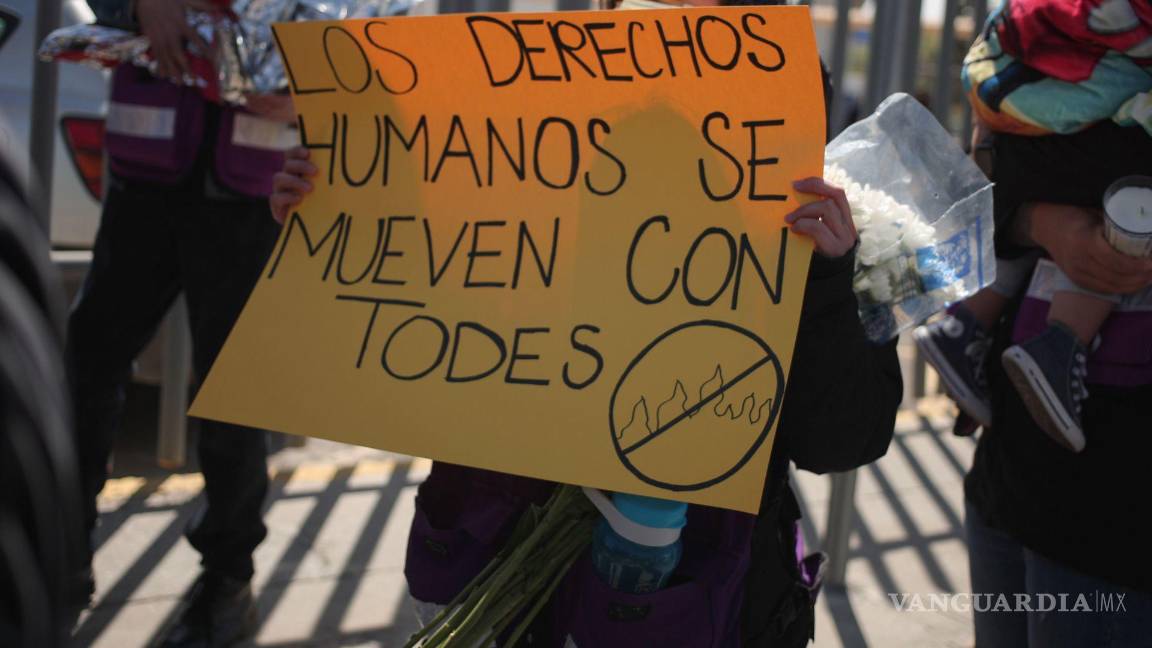 LOS DERECHOS
HUMANOS SE
MUEVEN CON
TODES
VANGUARDIA|MX